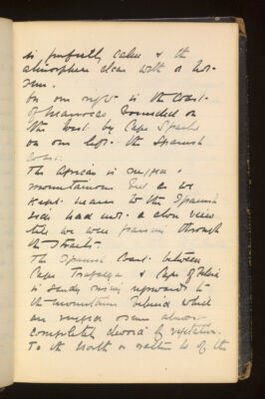 is perfectly calm & the
atmosphere clear with a hot
sun.
On our right is the Coast
of Morocco bounded on
the West by Cape Spartel
on our left the Spanish
Coast.
The African is rugged &
mountainous but as we
kept nearer to the Spanish
side had not a clear view
till we were passing through
the Straits.
The Spanish Coast between
Cape Trafalgar & Cape of Tarifa
is sandy rising upwards to
the mountains behind which
are rugged & seem almost
completely devoid of vegetation.
To the North